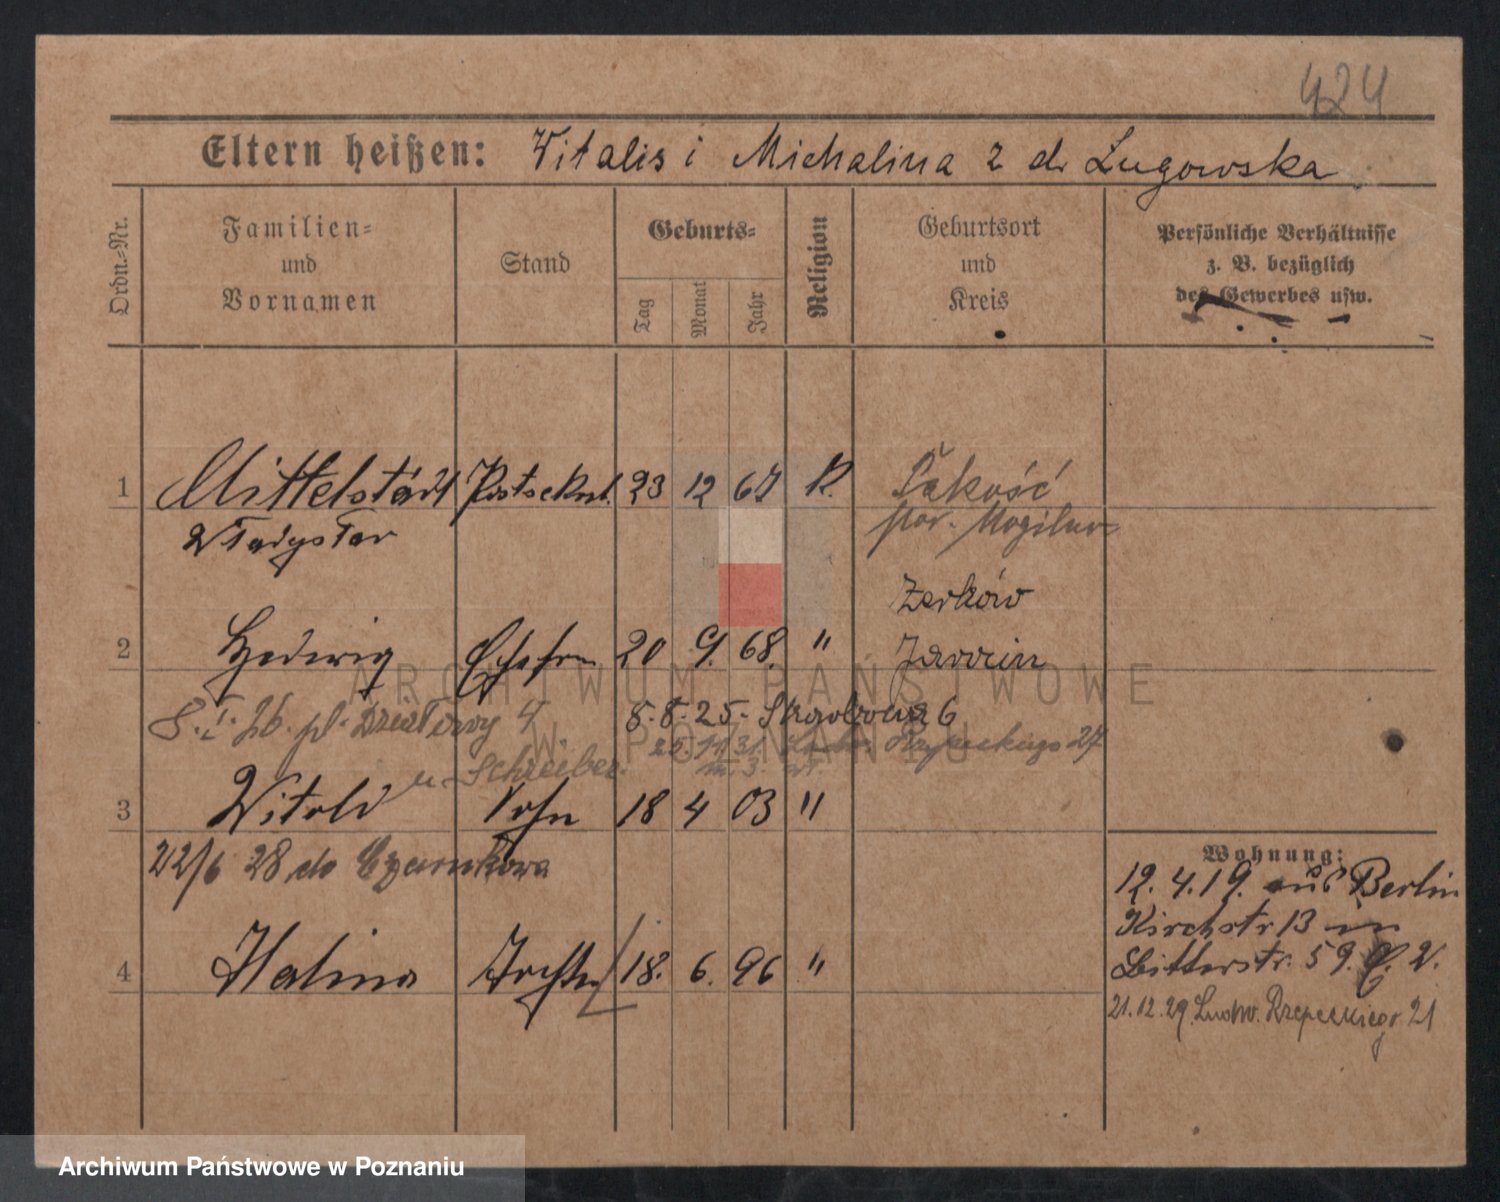 424
Eltern heißen: Vitalis i Michalina z d. Lugowska
Ordn.-Nr.
Familien- und Vornamen
Stand
Geburts-
Tag
Monat
Jahr
Religion
Geburtsort und Kreis
Persönliche Verhältnisse
z. B. bezüglich
des Gewerbes usw.
1 Mittelstädt 23 12 67 K. Pakość
Władysław pow. Mogilno
Żerków
2 Hedwig Ehefr 20 9. 68. " Jarocin
ARCHIWUM PAŃSTWOWE
8. 8. 25. 26
W POZNANIU
25. 11. 31. Rzepeckiego 27
Schreiber m. 3.
3 Witold Sohn 18 4 03 "
22/6 28 do Czarnkowa
Wohnung:
12. 4. 19. aus Berlin
Kirchstr 13 in
4 Halina Tochter 18. 6. 96 "
Bitterstr. 59.
21. 12. 29. Ludw. Rzepeckiego 21
Archiwum Państwowe w Poznaniu